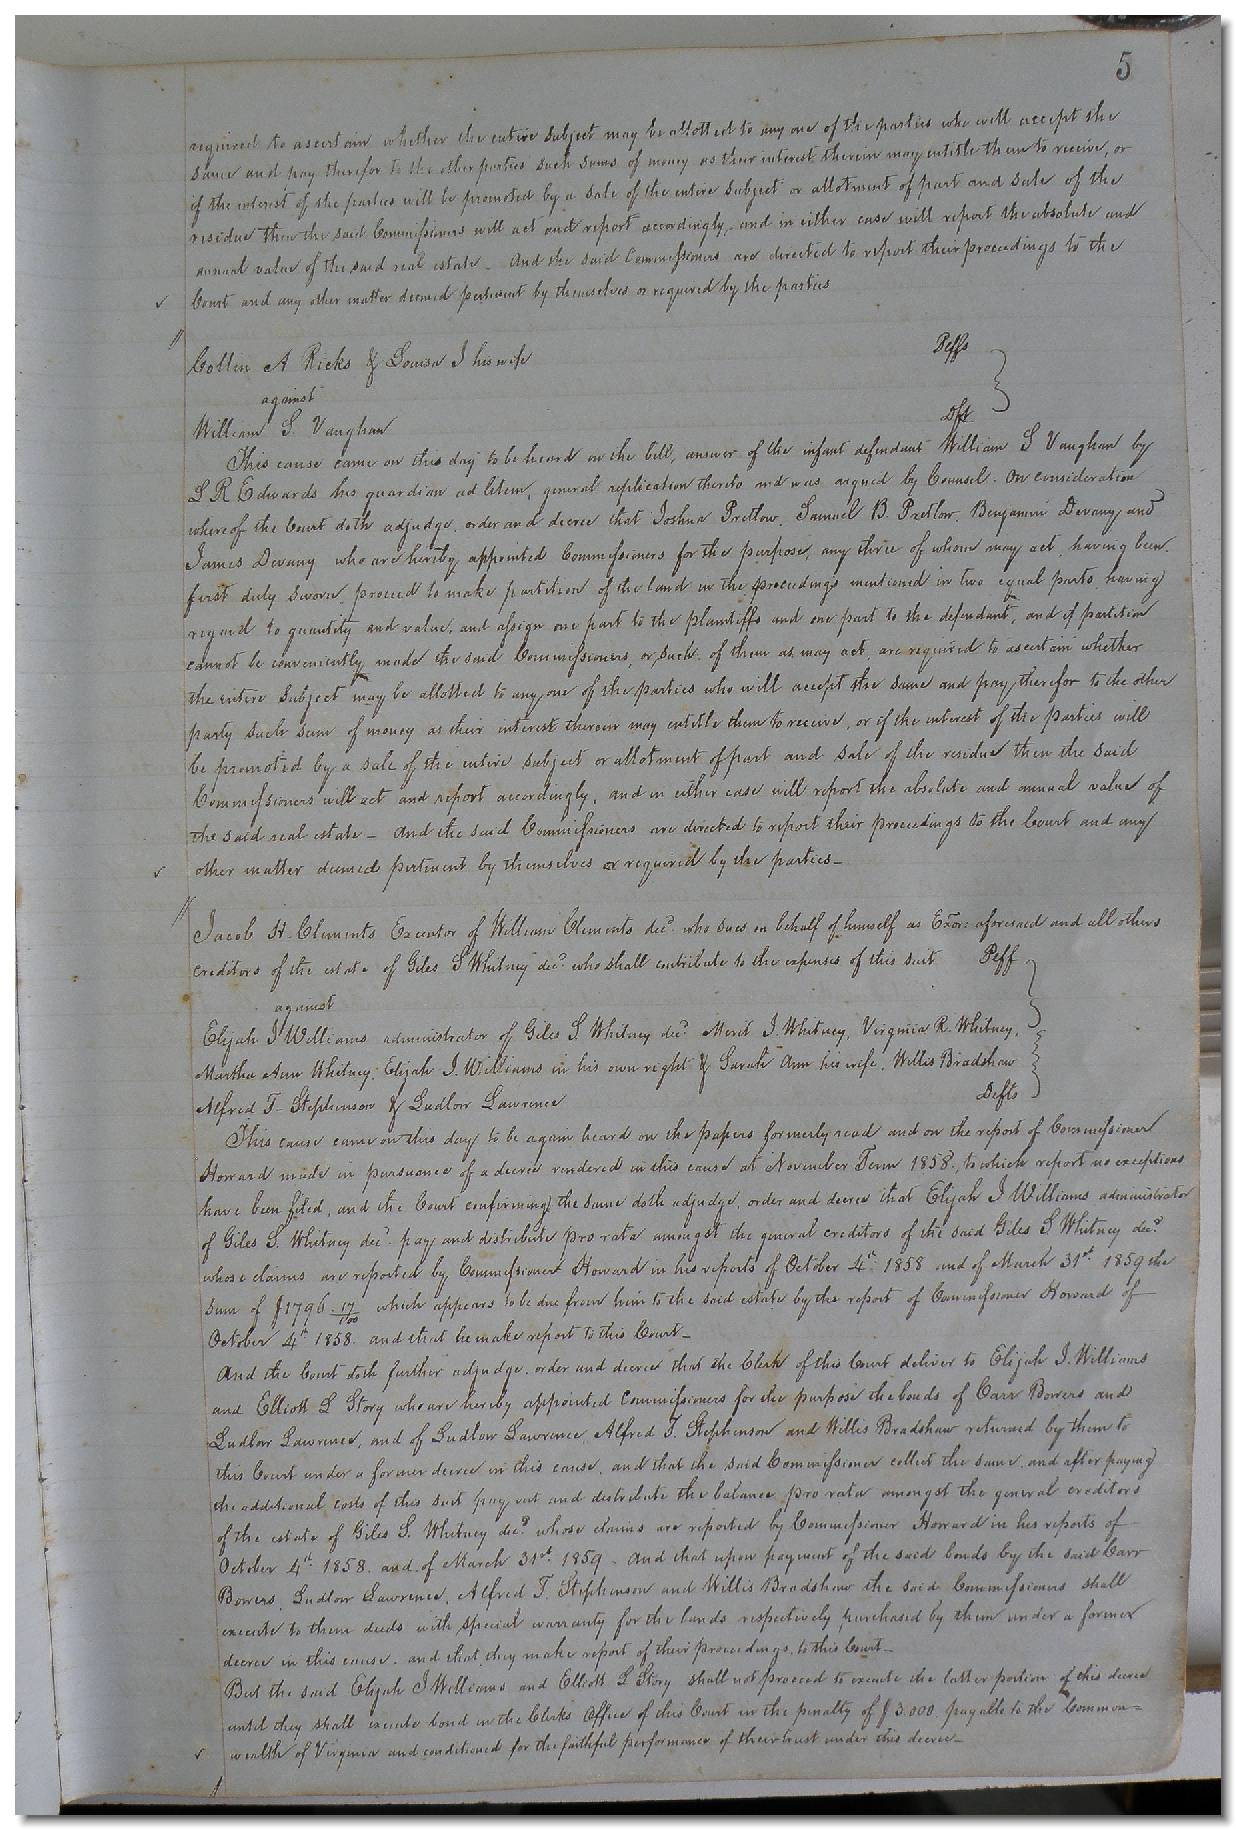 5
required to ascertain whether the entire subject may be allotted to any one of the parties who will accept the
same and pay therefor to the other parties such sums of money as their interest therein may entitle them to receive, or
if the interest of the parties will be promoted by a sale of the entire subject or allotment of part and sale of the
residue then the said Commissioners will act and report accordingly, and in either case will report the absolute and
annual value of the said real estate_ And the said Commissioners are directed to report their proceedings to the
Court and any other matter deemed pertinent by themselves or required by the parties
Colten A Ricks & Louisa J his wife Peffs
against
William S. Vaughan Dft
This cause came on this day to be heard on the bill, answer of the infant defendant William S Vaughan by
S R Edwards his guardian ad litem, general replication thereto and was argued by Counsel. On consideration
whereof the Court doth adjudge, order and decree that Joshua Pretlow, Samuel B. Pretlow, Benjamin Devany and
James Devany who are hereby appointed Commissioners for the purpose, any three of whom may act, having been
first duly sworn, proceed to make partition of the land in the proceedings mentioned in two equal parts, having
regard to quantity and value, and assign one part to the plaintiffs and one part to the defendant, and if partition
cannot be conveniently made the said Commissioners, or such of them as may act, are required to ascertain whether
the entire subject may be allotted to any one of the parties who will accept the same and pay therefor to the other
party such sum of money as their interest therein may entitle them to receive, or if the interest of the parties will
be promoted by a sale of the entire subject or allotment of part and sale of the residue then the said
Commissioners will act and report accordingly, and in either case will report the absolute and annual value of
the said real estate_ And the said Commissioners are directed to report their proceedings to the Court and any
other matter deemed pertinent by themselves or required by the parties_
Jacob H. Clements Executor of William Clements decd. who sues on behalf of himself as Exor: aforesaid and all others
creditors of the estate of Giles S Whitney decd. who shall contribute to the expenses of this suit Peff
against
Elijah J Williams administrator of Giles S. Whitney decd. Merit J. Whitney, Virginia R. Whitney,
Martha Ann Whitney, Elijah J. Williams in his own right & Sarah Ann his wife, Willis Bradshaw
Alfred T. Stephenson & Ludlow Lawrence Defts
This cause came on this day to be again heard on the papers formerly read and on the report of Commissioner
Howard made in pursuance of a decree rendered in this cause at November Term 1858, to which report no exceptions
have been filed, and the Court confirming the same doth adjudge, order and decree that Elijah J Williams administrator
of Giles S. Whitney decd. pay and distribute pro rata amongst the general creditors of the said Giles S Whitney decd.
whose claims are reported by Commissioner Howard in his reports of October 4th. 1858 and of March 31st. 1859 the
sum of $1796 17/100 which appears to be due from him to the said estate by the report of Commissioner Howard of
October 4th 1858. and that he make report to this Court_
And the Court doth further adjudge, order and decree that the Clerk of this Court deliver to Elijah J. Williams
and Elliott L Story who are hereby appointed Commissioners for the purpose the bonds of Carr Bowers and
Ludlow Lawrence, and of Ludlow Lawrence, Alfred T. Stephenson and Willis Bradshaw returned by them to
this Court under a former decree in this cause, and that the said Commissioner collect the same, and after paying
the additional costs of this suit pay out and distribute the balance pro rata amongst the general creditors
of the estate of Giles S. Whitney decd. whose claims are reported by Commissioner Howard in his reports of
October 4th. 1858. and of March 31st. 1859. And that upon payment of the said bonds by the said Carr
Bowers, Ludlow Lawrence, Alfred T. Stephenson and Willis Bradshaw the said Commissioners shall
execute to them deeds with special warranty for the lands respectively purchased by them under a former
decree in this cause, and that they make report of their proceedings to this Court_
But the said Elijah J Williams and Elliott L Story shall not proceed to execute the latter portion of this decree
until they shall execute bond in the Clerks Office of this Court in the penalty of $3.000 payable to the Common=
wealth of Virginia and conditioned for the faithful performance of their trust under this decree_